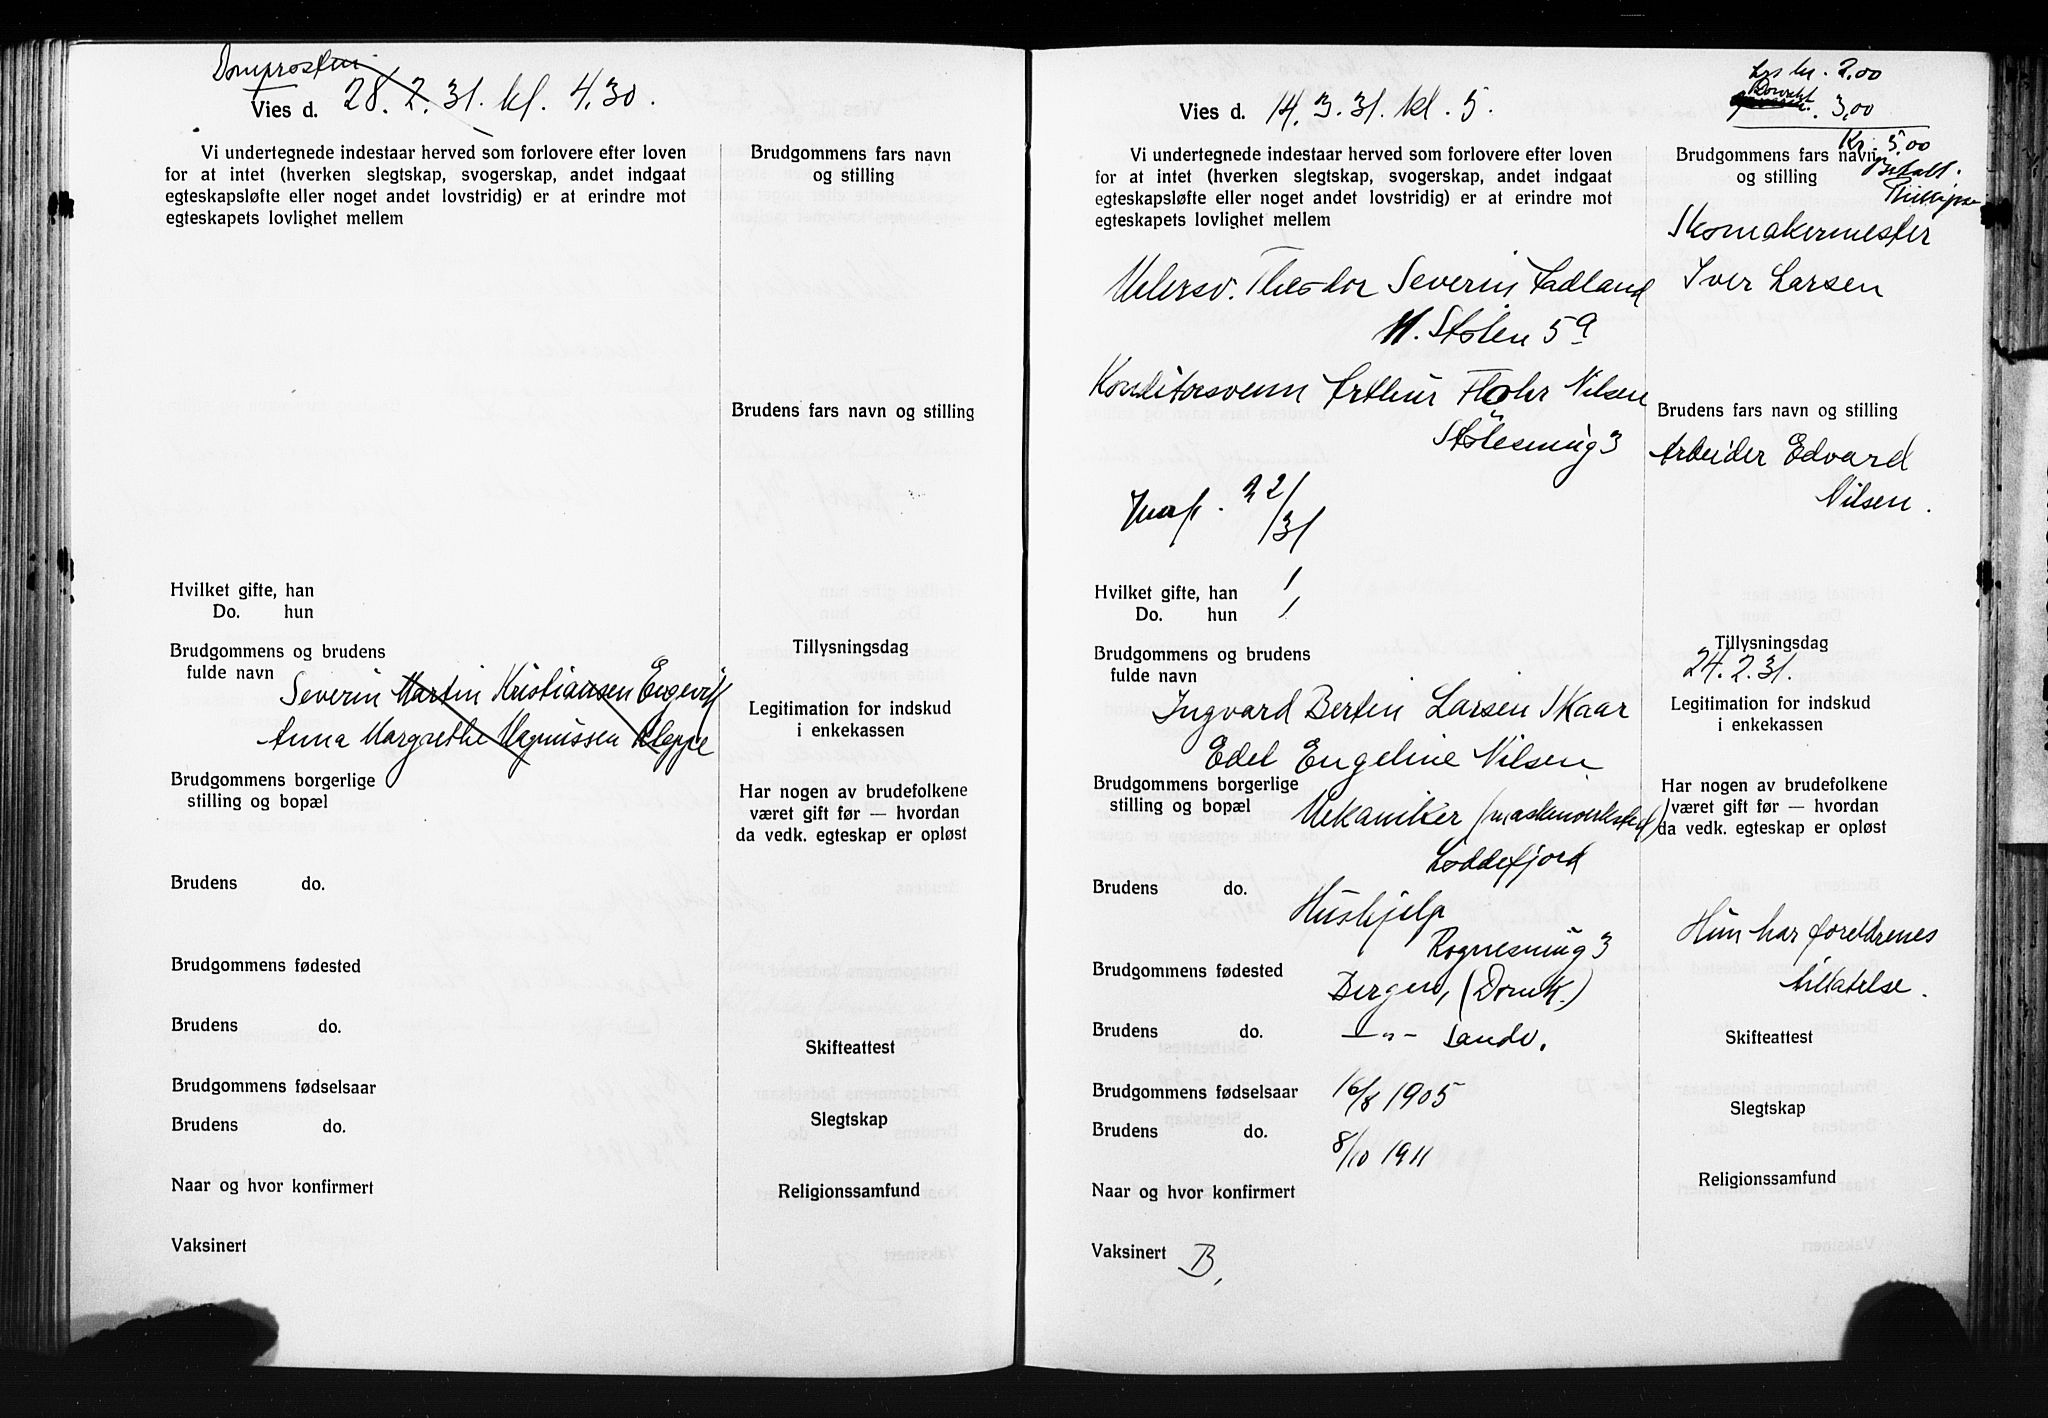 Domprosten
Vies d. 28. 2. 31. kl. 4.30.
Vi undertegnede indestaar herved som forlovere efter loven
for at intet (hverken slegtskap, svogerskap, andet indgaat
egteskapsløfte eller noget andet lovstridig) er at erindre mot
egteskapets lovlighet mellem
Brudgommens fars navn
og stilling
Brudens fars navn og stilling
Hvilket gifte, han
Do. hun
Brudgommens og brudens
fulde navn
Severin Martin Kristiansen Engevik
Anna Margrethe Magnussen Kleppe
Tillysningsdag
Legitimation for indskud
i enkekassen
Brudgommens borgerlige
stilling og bopæl
Har nogen av brudefolkene
været gift før — hvordan
da vedk. egteskap er opløst
Brudens do.
Brudgommens fødested
Brudens do.
Skifteattest
Brudgommens fødselsaar
Brudens do.
Slegtskap
Naar og hvor konfirmert
Religionssamfund
Vaksinert
Vies d. 14. 3. 31. kl. 5.
2.00
3,00
Kr. 5.00
Betalt.
Vi undertegnede indestaar herved som forlovere efter loven
for at intet (hverken slegtskap, svogerskap, andet indgaat
egteskapsløfte eller noget andet lovstridig) er at erindre mot
egteskapets lovlighet mellem
Brudgommens fars navn
og stilling
Skomakermester
Iver Larsen
Malersv. Theodor Severin Fadland
N. Stølen 5a
Konditorsvenn Arthur Flohr Nilsen
Stølesmug 3
Brudens fars navn og stilling
Arbeider Edvard
Nilsen.
22/
/31
Hvilket gifte, han 1
Do. hun 1,
Brudgommens og brudens
fulde navn
Ingvard Bertin Larsen Skaar
Edel Engeline Nilsen
Tillysningsdag
24.2.31.
Legitimation for indskud
i enkekassen
Brudgommens borgerlige
stilling og bopæl
Mekaniker (maskinverksted)
Loddefjord
Har nogen av brudefolkene
været gift før — hvordan
da vedk. egteskap er opløst
Brudens do.
Hushjelp
Rognesmug 3
Hun har foreldrenes
tillatelse.
Brudgommens fødested
Bergen, (Domk.)
Brudens do. —"— Sandv.
Skifteattest
Brudgommens fødselsaar 16/8 1905
Brudens do. 8/10 1911
Slegtskap
Naar og hvor konfirmert
Religionssamfund
Vaksinert B,